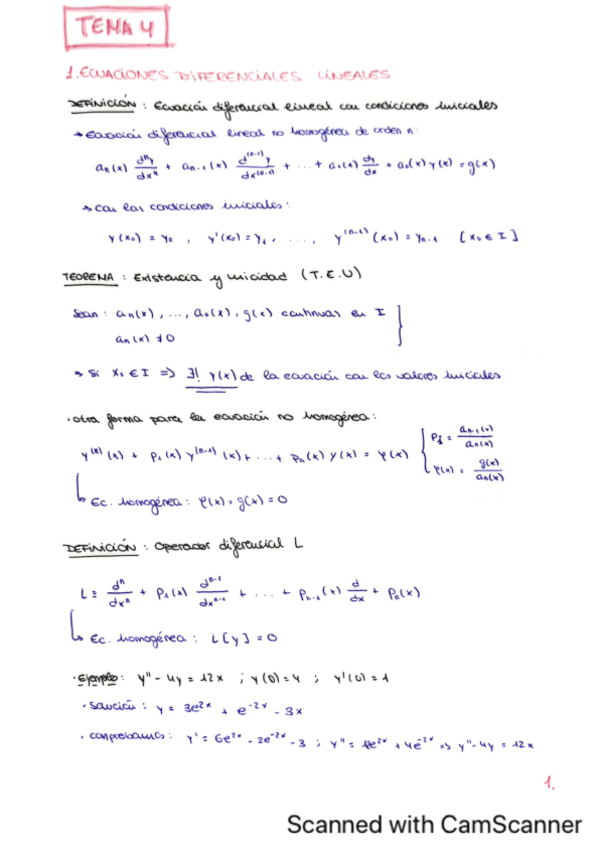 TEMA 4
1. ECUACIONES DIFERENCIALES LINEALES
DEFINICIÓN : Ecuación diferencial lineal con condiciones iniciales
→ Ecuación diferencial lineal no homogénea de orden n:
aₙ(x) dⁿy/dxⁿ + aₙ₋₁(x) d⁽ⁿ⁻¹⁾y/dx⁽ⁿ⁻¹⁾ + ... + a₁(x) dy/dx + a₀(x) y(x) = g(x)
→ Con las condiciones iniciales:
y(x₀) = y₀ , y'(x₀) = y₁ , ... , y⁽ⁿ⁻¹⁾(x₀) = yₙ₋₁ [x₀ ∈ I]
TEOREMA : Existencia y unicidad (T.E.U)
Sean : aₙ(x), ..., a₀(x), g(x) continuas en I
aₙ(x) ≠ 0
→ Si x₀ ∈ I => ∃! y(x) de la ecuación con los valores iniciales
· Otra forma para la ecuación no homogénea:
y⁽ⁿ⁾(x) + p₁(x) y⁽ⁿ⁻¹⁾(x) + ... + pₙ(x) y(x) = φ(x) { p₁ = aₙ₋₁(x)/aₙ(x)
φ(x) = g(x)/aₙ(x)
↳ Ec. homogénea : φ(x) = g(x) = 0
DEFINICIÓN : Operador diferencial L
L ≡ dⁿ/dxⁿ + p₁(x) dⁿ⁻¹/dxⁿ⁻¹ + ... + pₙ₋₁(x) d/dx + pₙ(x)
↳ Ec. homogénea : L[y] = 0
· Ejemplo: y'' - 4y = 12x ; y(0) = 4 ; y'(0) = 1
· Solución : y = 3e²ˣ + e⁻²ˣ - 3x
· comprobamos : y' = 6e²ˣ - 2e⁻²ˣ - 3 ; y'' = e²ˣ + 4e⁻²ˣ => y'' - 4y = 12x
1.
Scanned with CamScanner